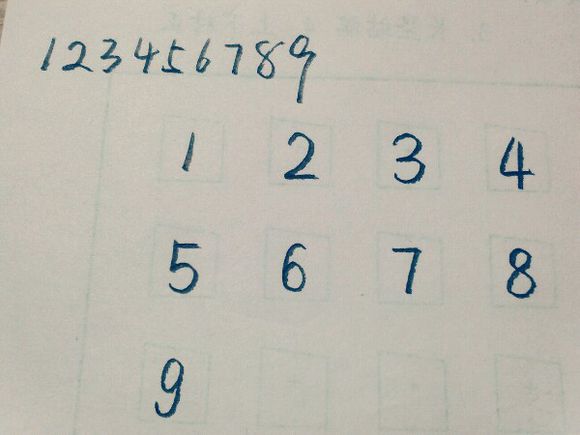 123456789
1 2 3 4
5 6 7 8
9